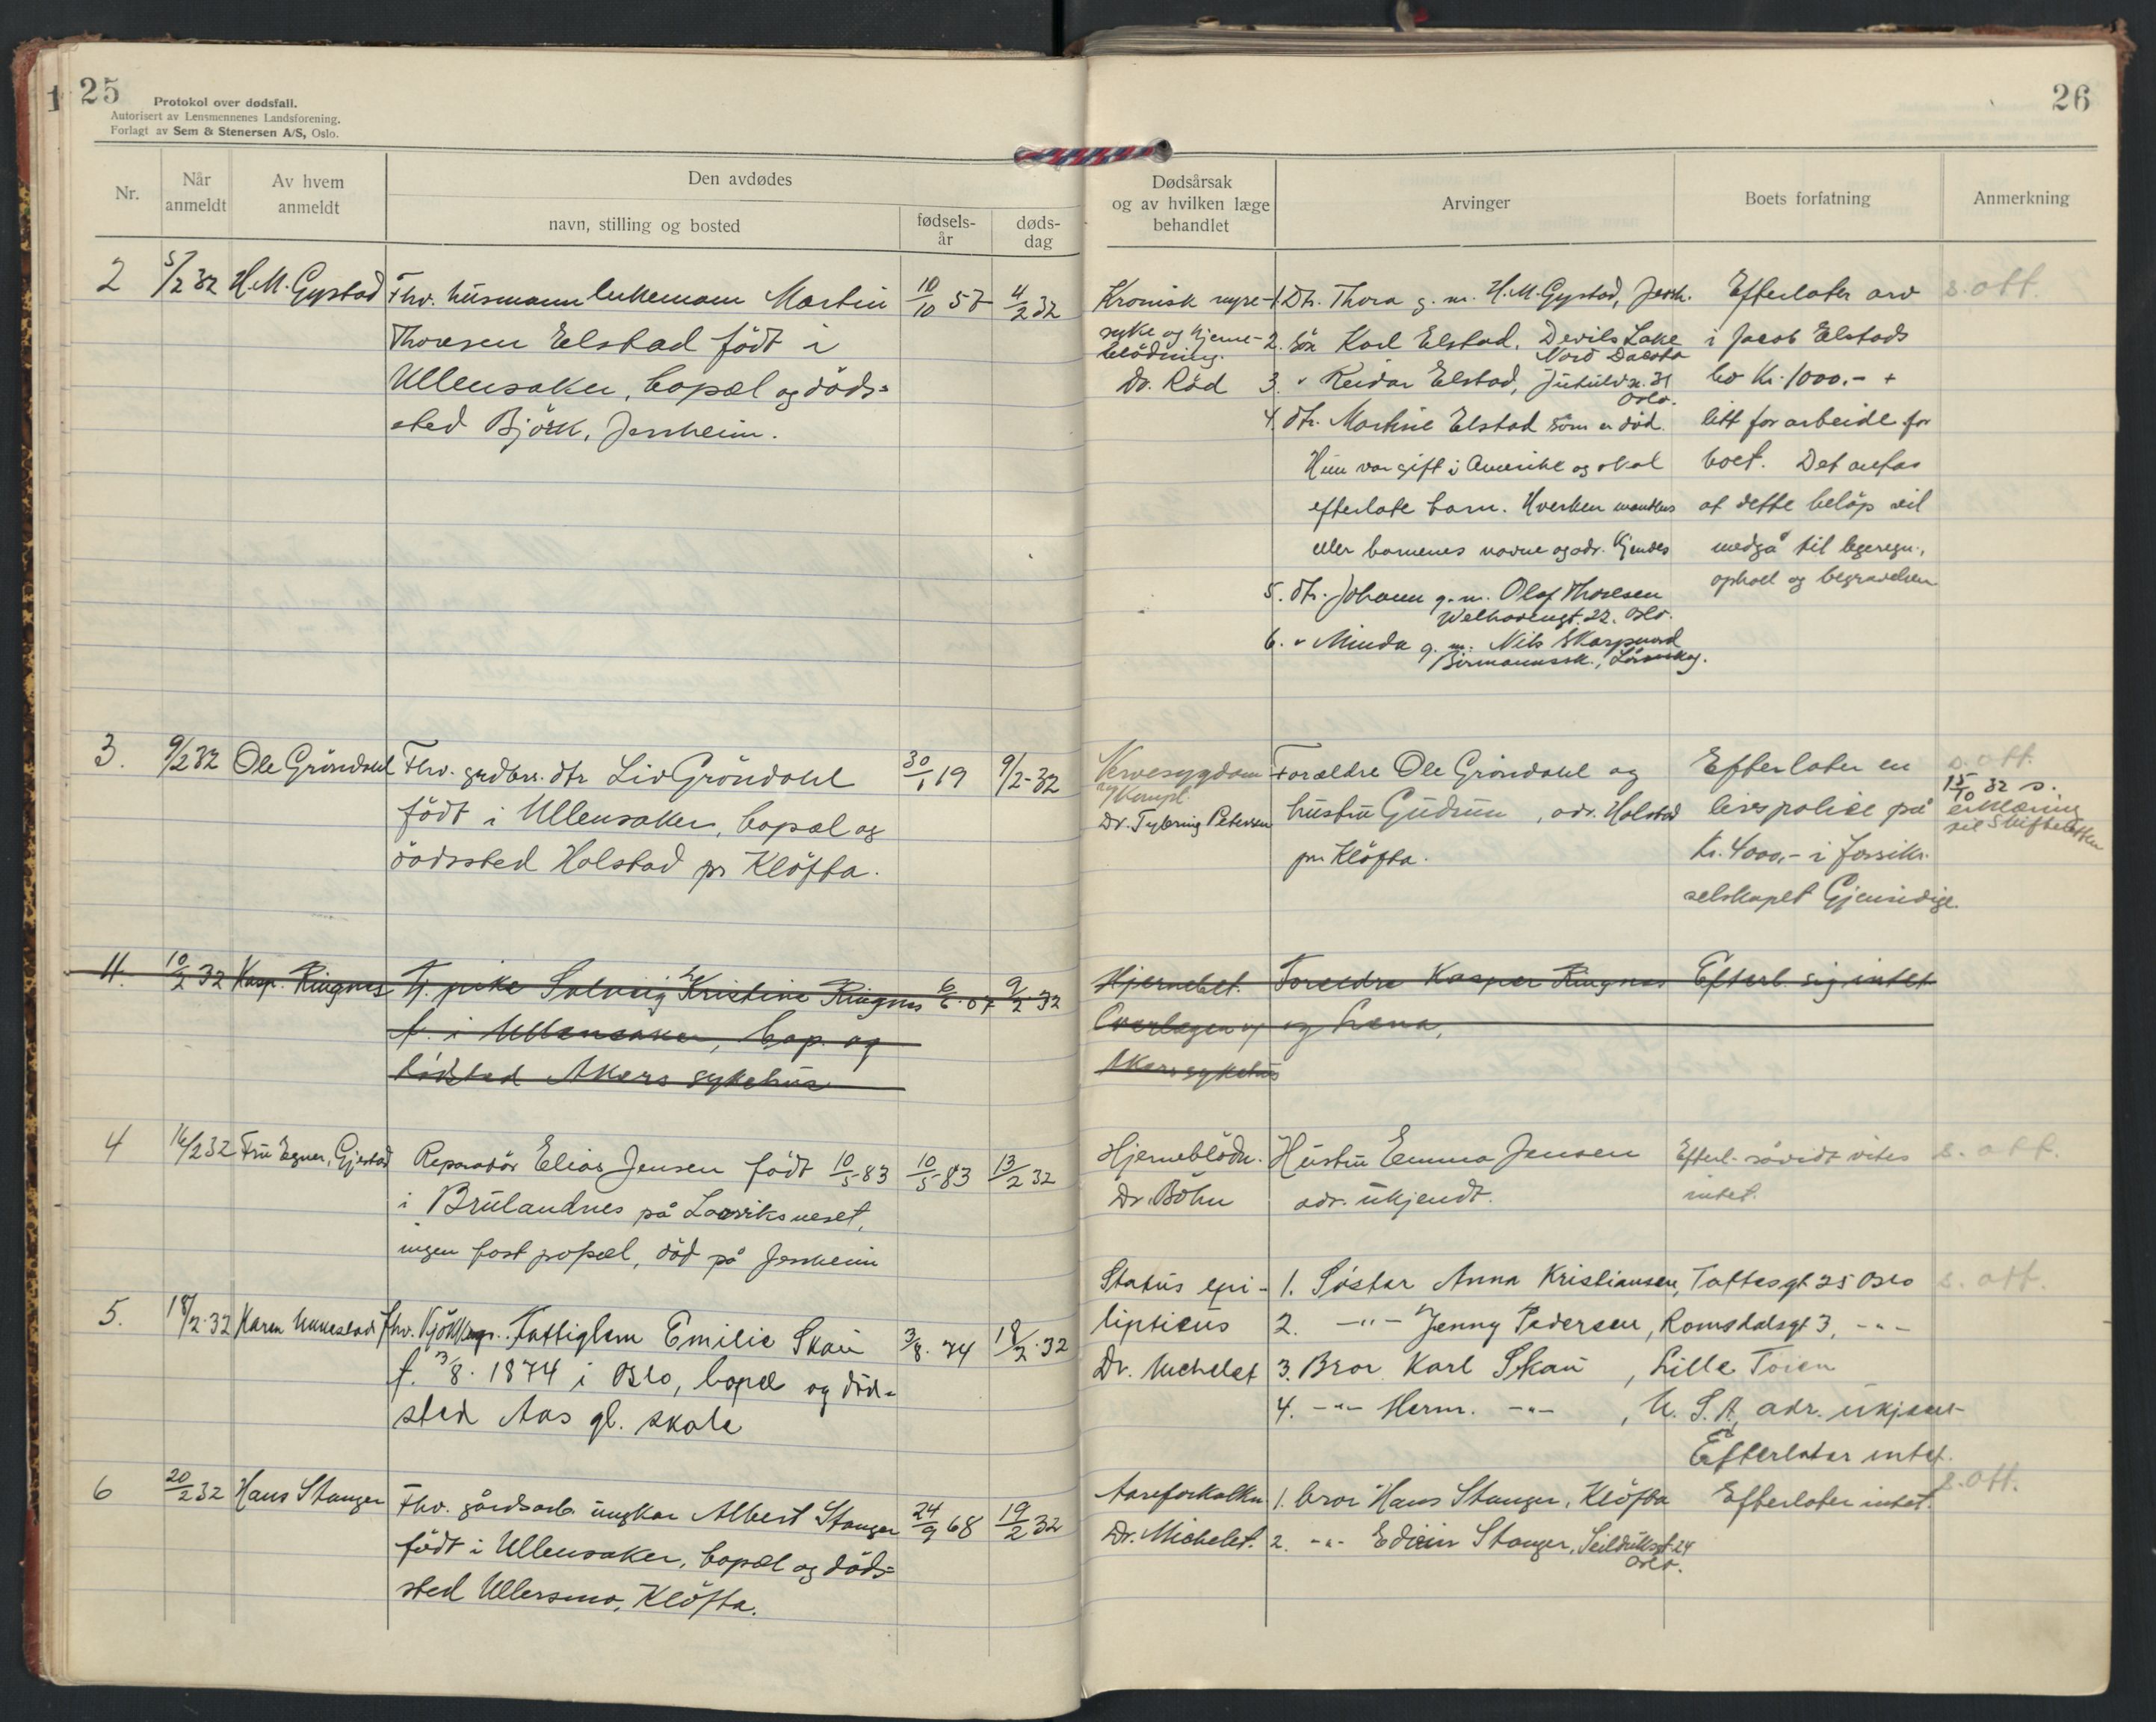 1
25
Protokol over dødsfall.
Autorisert av Lensmennenes Landsforening.
Forlagt av Sem & Stenersen A/S, Oslo.
26
Nr.
Når anmeldt
Av hvem anmeldt
Den avdødes
navn, stilling og bosted
fødsels-år
døds-dag
Dødsårsak og av hvilken læge behandlet
Arvinger
Boets forfatning
Anmerkning
2 5/2 32 H.M. Gystad Fhv. husmann enkemann Martin 10/10 57 4/2 32
Thoresen Elstad född i
Ullensaker, bopæl og döds=
sted Björk, Jessheim.
Kronisk nyre-
syke og hjerne-
blödning.
Dr. Röd
1. Dtr. Thora g.m. H.M. Gystad, Jessh.
2. Sön Karl Elstad, Devils Lake
Nord Dacota
3. " Reidar Elstad, 31
Oslo.
4. Dtr. Martine Elstad som er död.
Hun var gift i Amerika og skal
efterlate barn. Hverken mandens
eller barnenes navne og adr. kjendes
5. Dtr. Johanne g.m. Olaf Thoresen
Welhavensgt. 22. Oslo.
6. " Minda g.m. Nils Skarpnord
Lörenskog.
Efterlater arv
i Jacob Elstads
bo Kr. 1000.- +
litt for arbeide for
boet. Det antas
at dette belöp vil
medgå til legeregn.,
ophold og begravelsen
s. att.
3. 9/2 32 Ole Gröndahl Fhv. grdbr. dtr Liv Gröndahl 30/1 19 9/2-32
född i Ullensaker, bopæl og
dödssted Holstad pr Klöfta.
Nervesygdom
og Kompl.
Dr. Petersen
Forældre Ole Gröndahl og
hustru Gudrun, adr. Holstad
pr. Klöfta.
Efterlater en
livspolise på
Kr. 4000,- i forsikr.
selskapet Gjensidige.
s. att.
15/10 32 s.
erklæring
til Skifteretten
4. 10/2 32 Kasp. Ringnes Tj. pike Solveig Kristine Ringnes 6/6.07 9/2.32
f. i Ullensaker, bop. og
dödsted Akers sykehus
Hjernebet.
Overlægen v/
Akers sykehus
Foreldre Kasper Ringnes
og Lena,
Efterl. sig intet
4 16/2 32 Fru Egner, Gjestad Reparatör Elias Jensen född 10/5 83 10/5-83 13/2 32
i Brulandnes på Larviksneset,
ingen fast popæl, död på Jessheim
Hjerneblödn.
Dr. Böhn
Hustru Emma Jensen
adr. ukjendt.
Efterl. såvidt vites
intet.
s. att.
5. 18/2.32 Karen fhv. Fattiglem Emilie Skau 3/8.74 18/2.32
f. 3/8. 1874 i Oslo, bopæl og död=
sted Aas gl. skole
Status epi-
lipticus
Dr. Michelet
1. Söster Anna Kristiansen, Toftesgt 25 Oslo
2. -"- Jenny Pedersen, Romsdalsgt 3, -"-
3. Bror Karl Skau, Lille Töien
4. -"- Herm. -"-, U.S.A, adr. ukjent
Efterlater intet.
s. att.
6 20/2 32 Hans Stanger Fhv. gårdsarb. ungkar Albert Stanger 24/9 68 19/2 32
född i Ullensaker, bopæl og döds=
sted Ullersmo, Klöfta.
Aareforkalkn.
Dr. Michelet.
1. bror Hans Stanger, Klöfta
2. -"- Edvin Stanger, Seilduksgt. 24
Oslo.
Efterlater intet.
s. att.